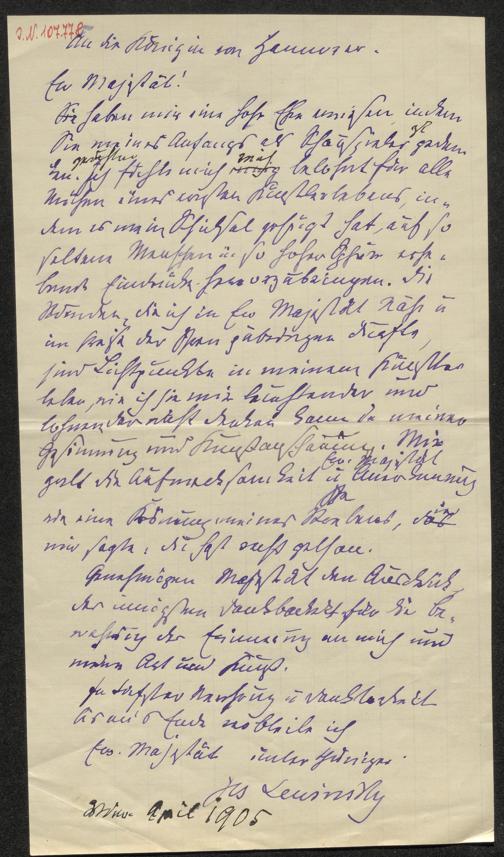 J.N. 107.778
An die Königin von Hannover.
Ew Majestät!
Sie haben mir eine hohe Ehre erwiesen, indem
Sie meines Anfangs als Schauspieler ge
zu. Ich fühle mich belohnt für alle
Mühen eines ernsten Künstlerlebens, in-
dem es mein Schicksal gefügt hat, auf so
seltene Menschen in so hoher Sphäre erhe-
bende Eindrücke hervorzubringen. Die
Stunden, die ich in Ew Majestät Nähe u
im Kreise der Ihren zubringen durfte,
sind Lichtpunkte in meinem Künstler
leben, wie ich sie mir leuchtender und
lohnender nicht denken kann in meiner
Gesinnung und Kunstanschauung. Mir
Ew. Majestät
galt die Aufmerksamkeit u Anerkennung
wie eine Krönung meines Strebens, das
mir sagte: du hast recht gethan.
Genehmigen Majestät den Ausdruck
der innigsten Dankbarkeit für die Be-
wahrung der Erinnerung an mich und
meine Art und Kunst.
In tiefster Verehrung u Dankbarkeit
bis ans Ende verbleibe ich
Ew. Majestät unterthäniger
Jos Lewinsky
Wien April 1905